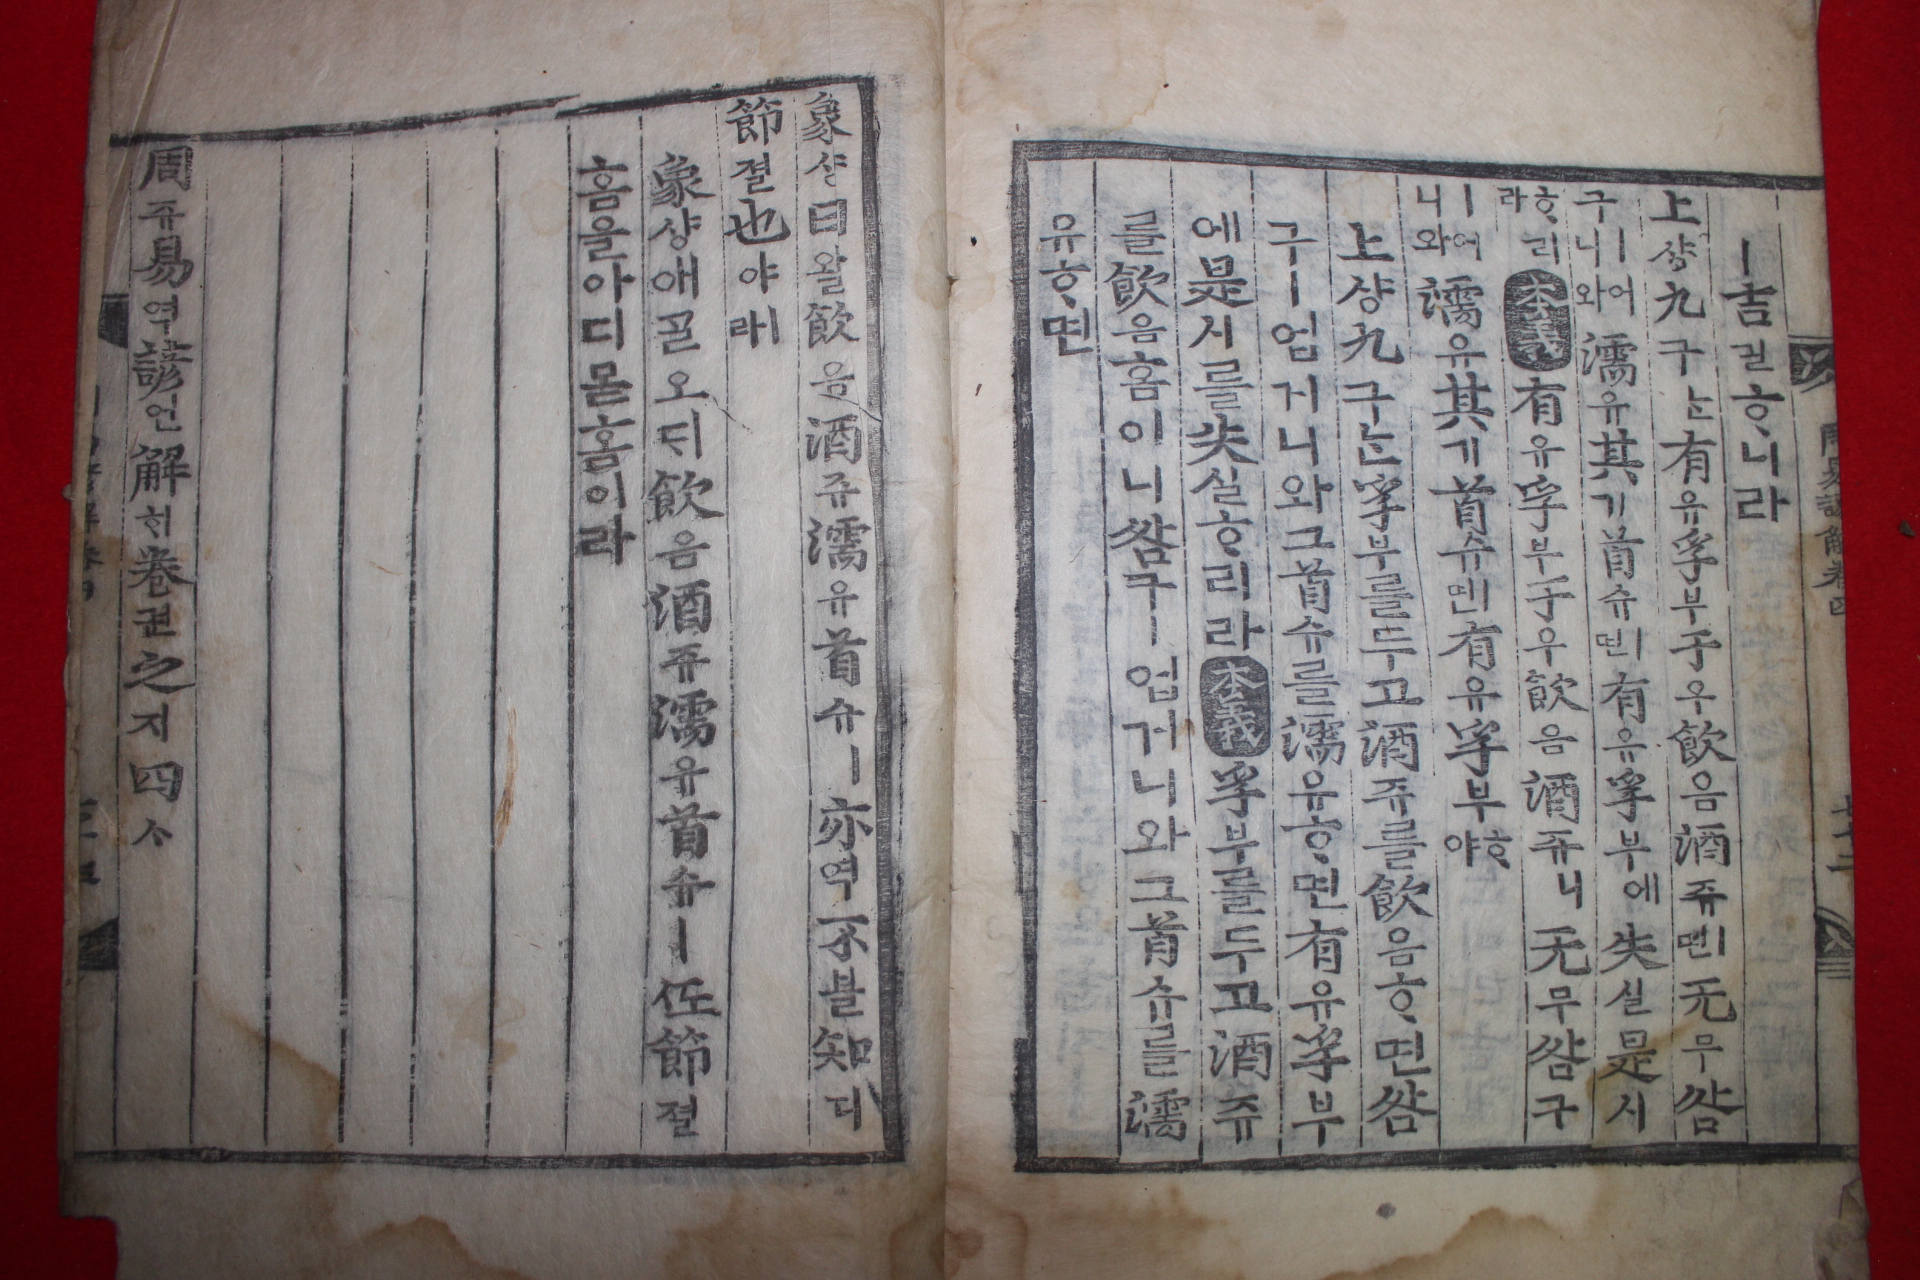 ㅣ吉길ᄒᆞ니라
上샹九구ᄂᆞᆫ有유孚부于우飮음酒쥬ㅣ면无무咎
구ㅣ어니와濡유其기首슈면有유孚부에失실是시
ᄒᆞ리라本義有유孚부于우飮음酒쥬니无무咎구
ㅣ어니와濡유其기首슈면有유孚부ᄒᆞ야
上샹九구ᄂᆞᆫ孚부를두고酒쥬를飮음ᄒᆞ면咎
구ㅣ업거니와그首슈를濡유ᄒᆞ면有유孚부
에是시를失실ᄒᆞ리라本義孚부를두고酒쥬
를飮음홈이니咎구ㅣ업거니와그首슈를濡
유ᄒᆞ면
象샹曰왈飮음酒쥬濡유首슈ㅣ亦역不블知디
節졀也야ㅣ라
象샹애ᄀᆞᆯ오ᄃᆡ飮음酒쥬濡유首슈ㅣ ᄯᅩ節졀
홈을아디몯홈이라
周쥬易역諺언解ᄒᆡ卷권之지四ᄉᆞ
周易諺解卷四